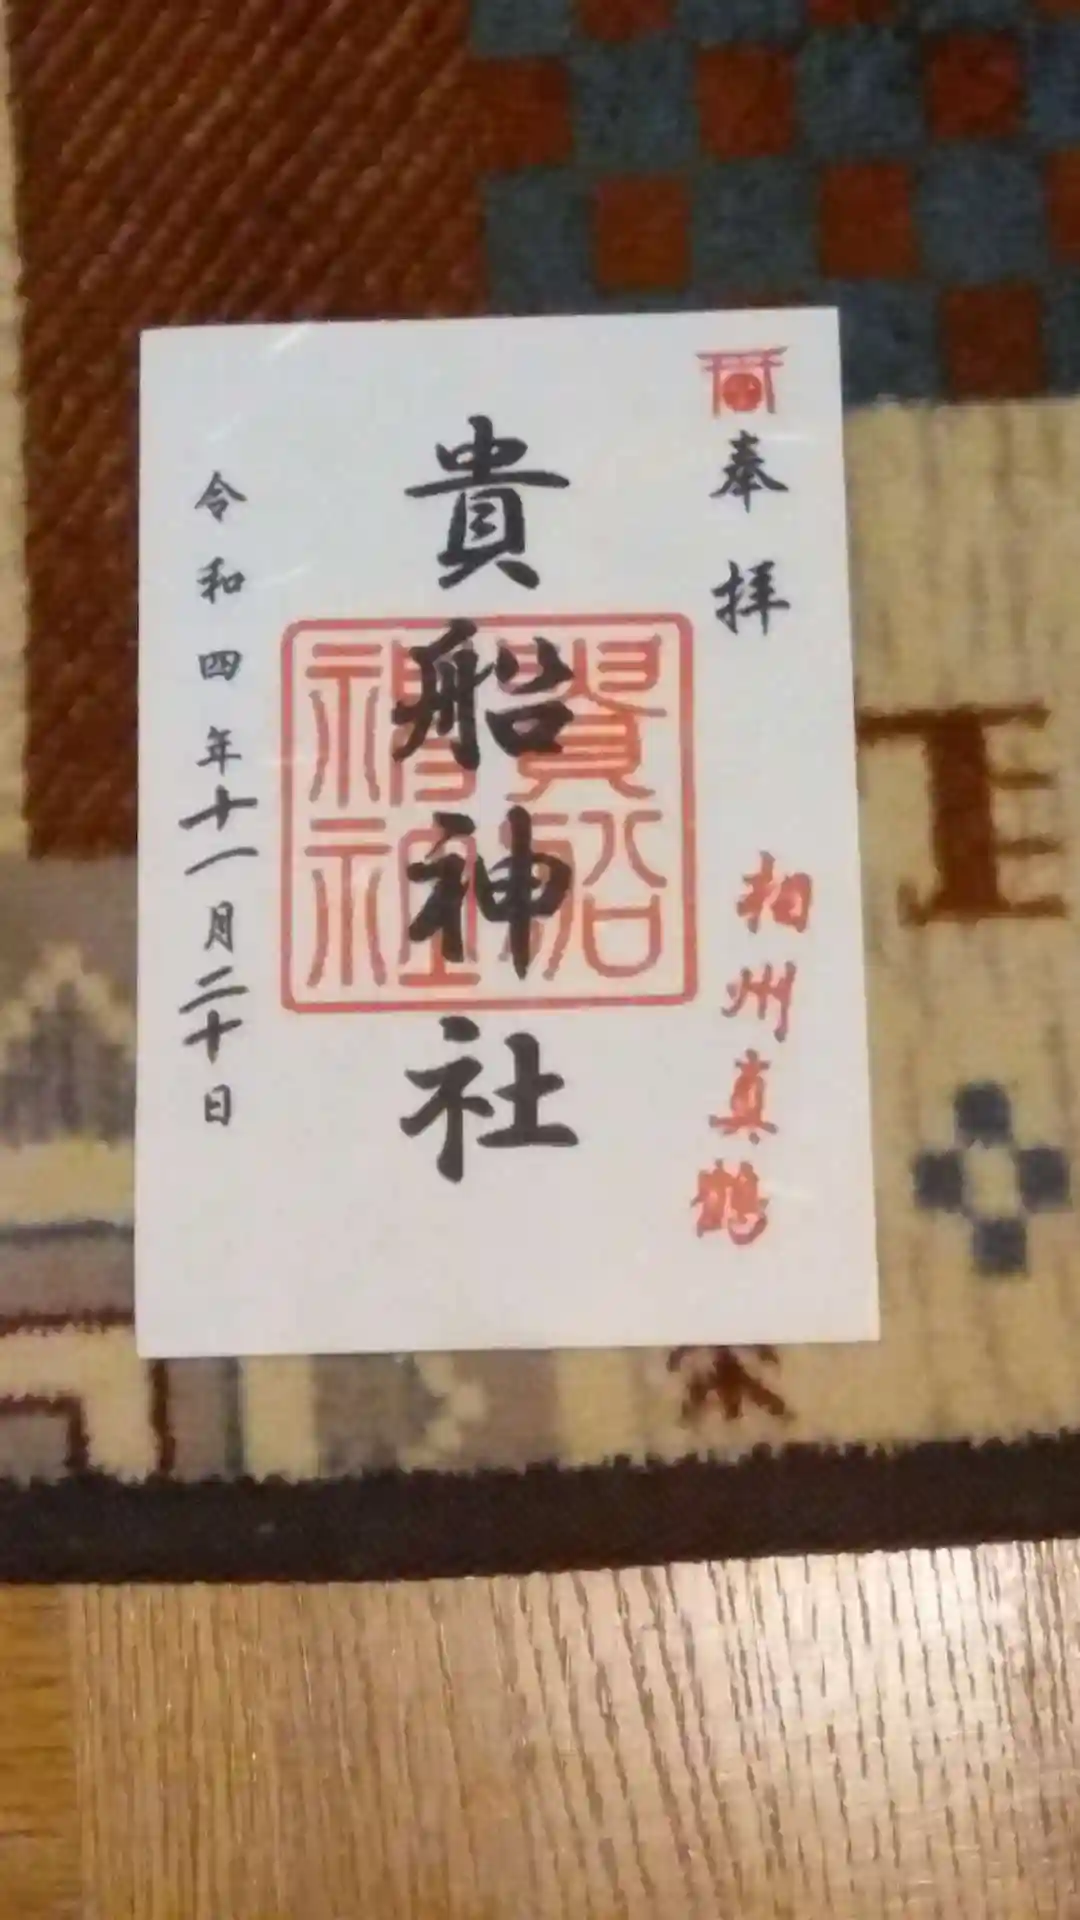 奉拝
相州真鶴
貴船神社
貴船神社
令和四年十一月二十日